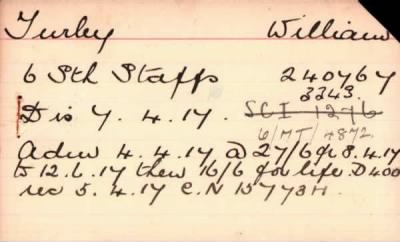 Turley William
6 Sth Staffs 240767
3343.
Dis 7.4.17. SCI 1276
6/MT/4872
Adm 4.4.17 @ 27/6 fr 8.4.17
to 12.6.17 then 16/6 for life. D400
rec 5.4.17 C.N 15773H.